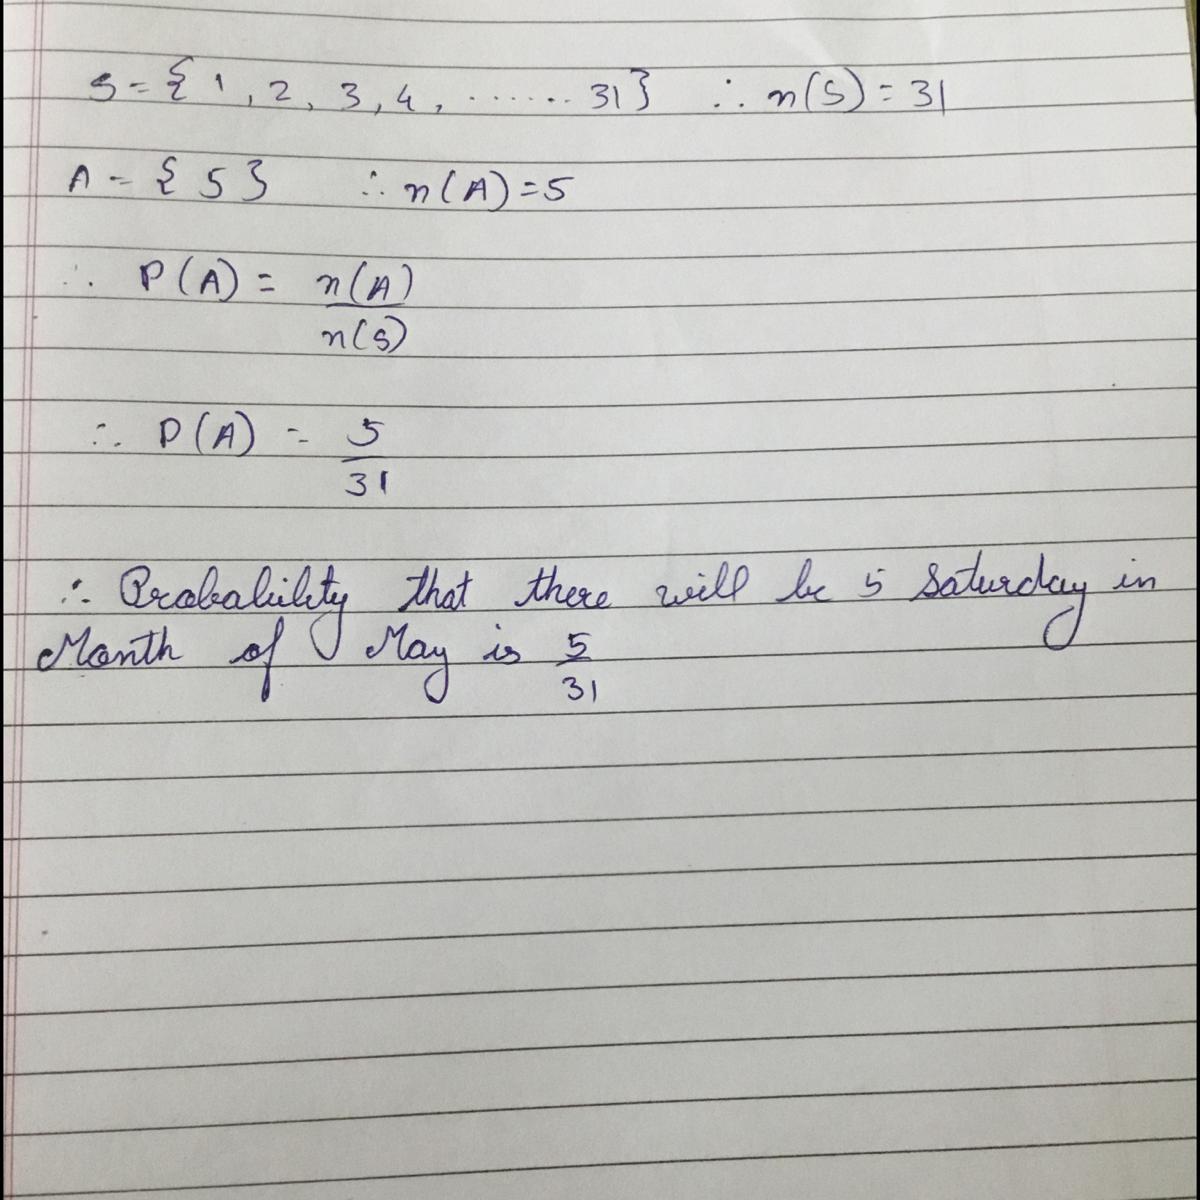 S = { 1, 2, 3, 4, ...... 31} ∴ n(S) = 31
A = { 5 } ∴ n(A) = 5
∴ P(A) = n(A)
n(S)
∴ P(A) = 5
31
∴ Probability that there will be 5 Saturday in
Month of May is 5
31